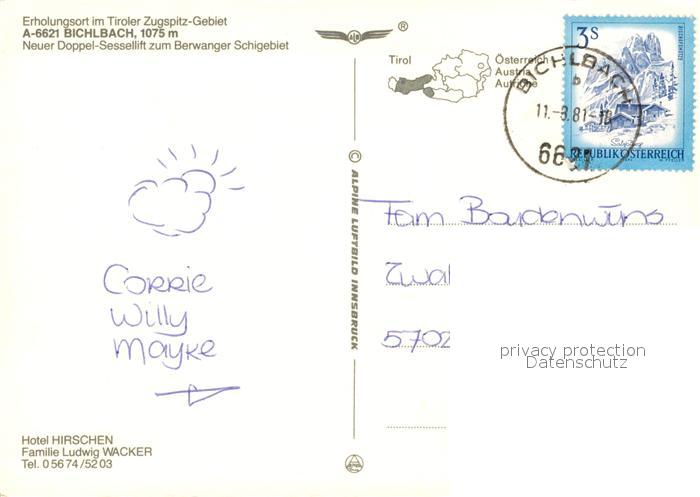 Erholungsort im Tiroler Zugspitz-Gebiet
A-6621 BICHLBACH, 1075 m
Neuer Doppel-Sessellift zum Berwanger Schigebiet
®
Tirol
Österreich
Austria
Autriche
3 S
BICHLBACH
b
11.-8.81-18
6621
REPUBLIK ÖSTERREICH
© ALPINE LUFTBILD INNSBRUCK
Fam
Zwal
5702
Corrie
Willy
Mayke
privacy protection
Datenschutz
Hotel HIRSCHEN
Familie Ludwig WACKER
Tel. 0 56 74 / 52 03